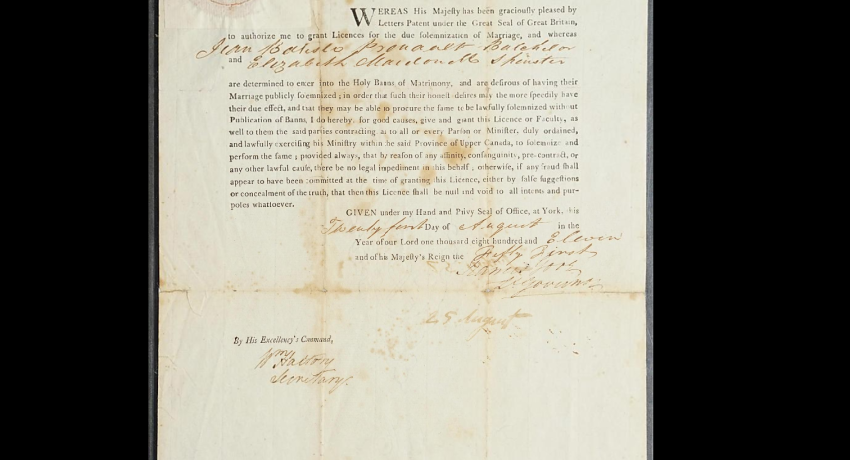 WHEREAS His Majeſty has been graciouſly pleaſed by
Letters Patent under the Great Seal of Great Britain,
to authorize me to grant Licences for the due ſolemnization of Marriage, and whereas
Jean Batiste Batchelor
and Elizabeth Macdonell Spinster
are determined to enter into the Holy Banns of Matrimony, and are deſirous of having their
Marriage publicly ſolemnized; in order that ſuch their honeſt deſires may the more ſpeedily have
their due effect, and that they may be able to procure the ſame to be lawfully ſolemnized without
Publication of Banns, I do hereby for good cauſes, give and grant this Licence or Faculty, as
well to them the said parties contracting as to all or every Parſon or Miniſter, duly ordained,
and lawfully exerciſing his Miniſtry within the ſaid Province of Upper Canada, to ſolemnize and
perform the ſame; provided always, that by reaſon of any affinity, conſanguinity, pre-contract, or
any other lawful cauſe, there be no legal impediment in this behalf; otherwiſe, if any fraud ſhall
appear to have been committed at the time of granting this Licence, either by falſe ſuggeſtions
or concealment of the truth, that then this Licence ſhall be null and void to all intents and pur-
poſes whatſoever.
GIVEN under my Hand and Privy Seal of Office, at York, this
Twenty first Day of August in the
Year of our Lord one thouſand eight hundred and Eleven
and of his Majeſty's Reign the Fifty First
Francis Gore
Lt Governor
25 August
By His Excellency's Command,
Wm Halton
Secretary.